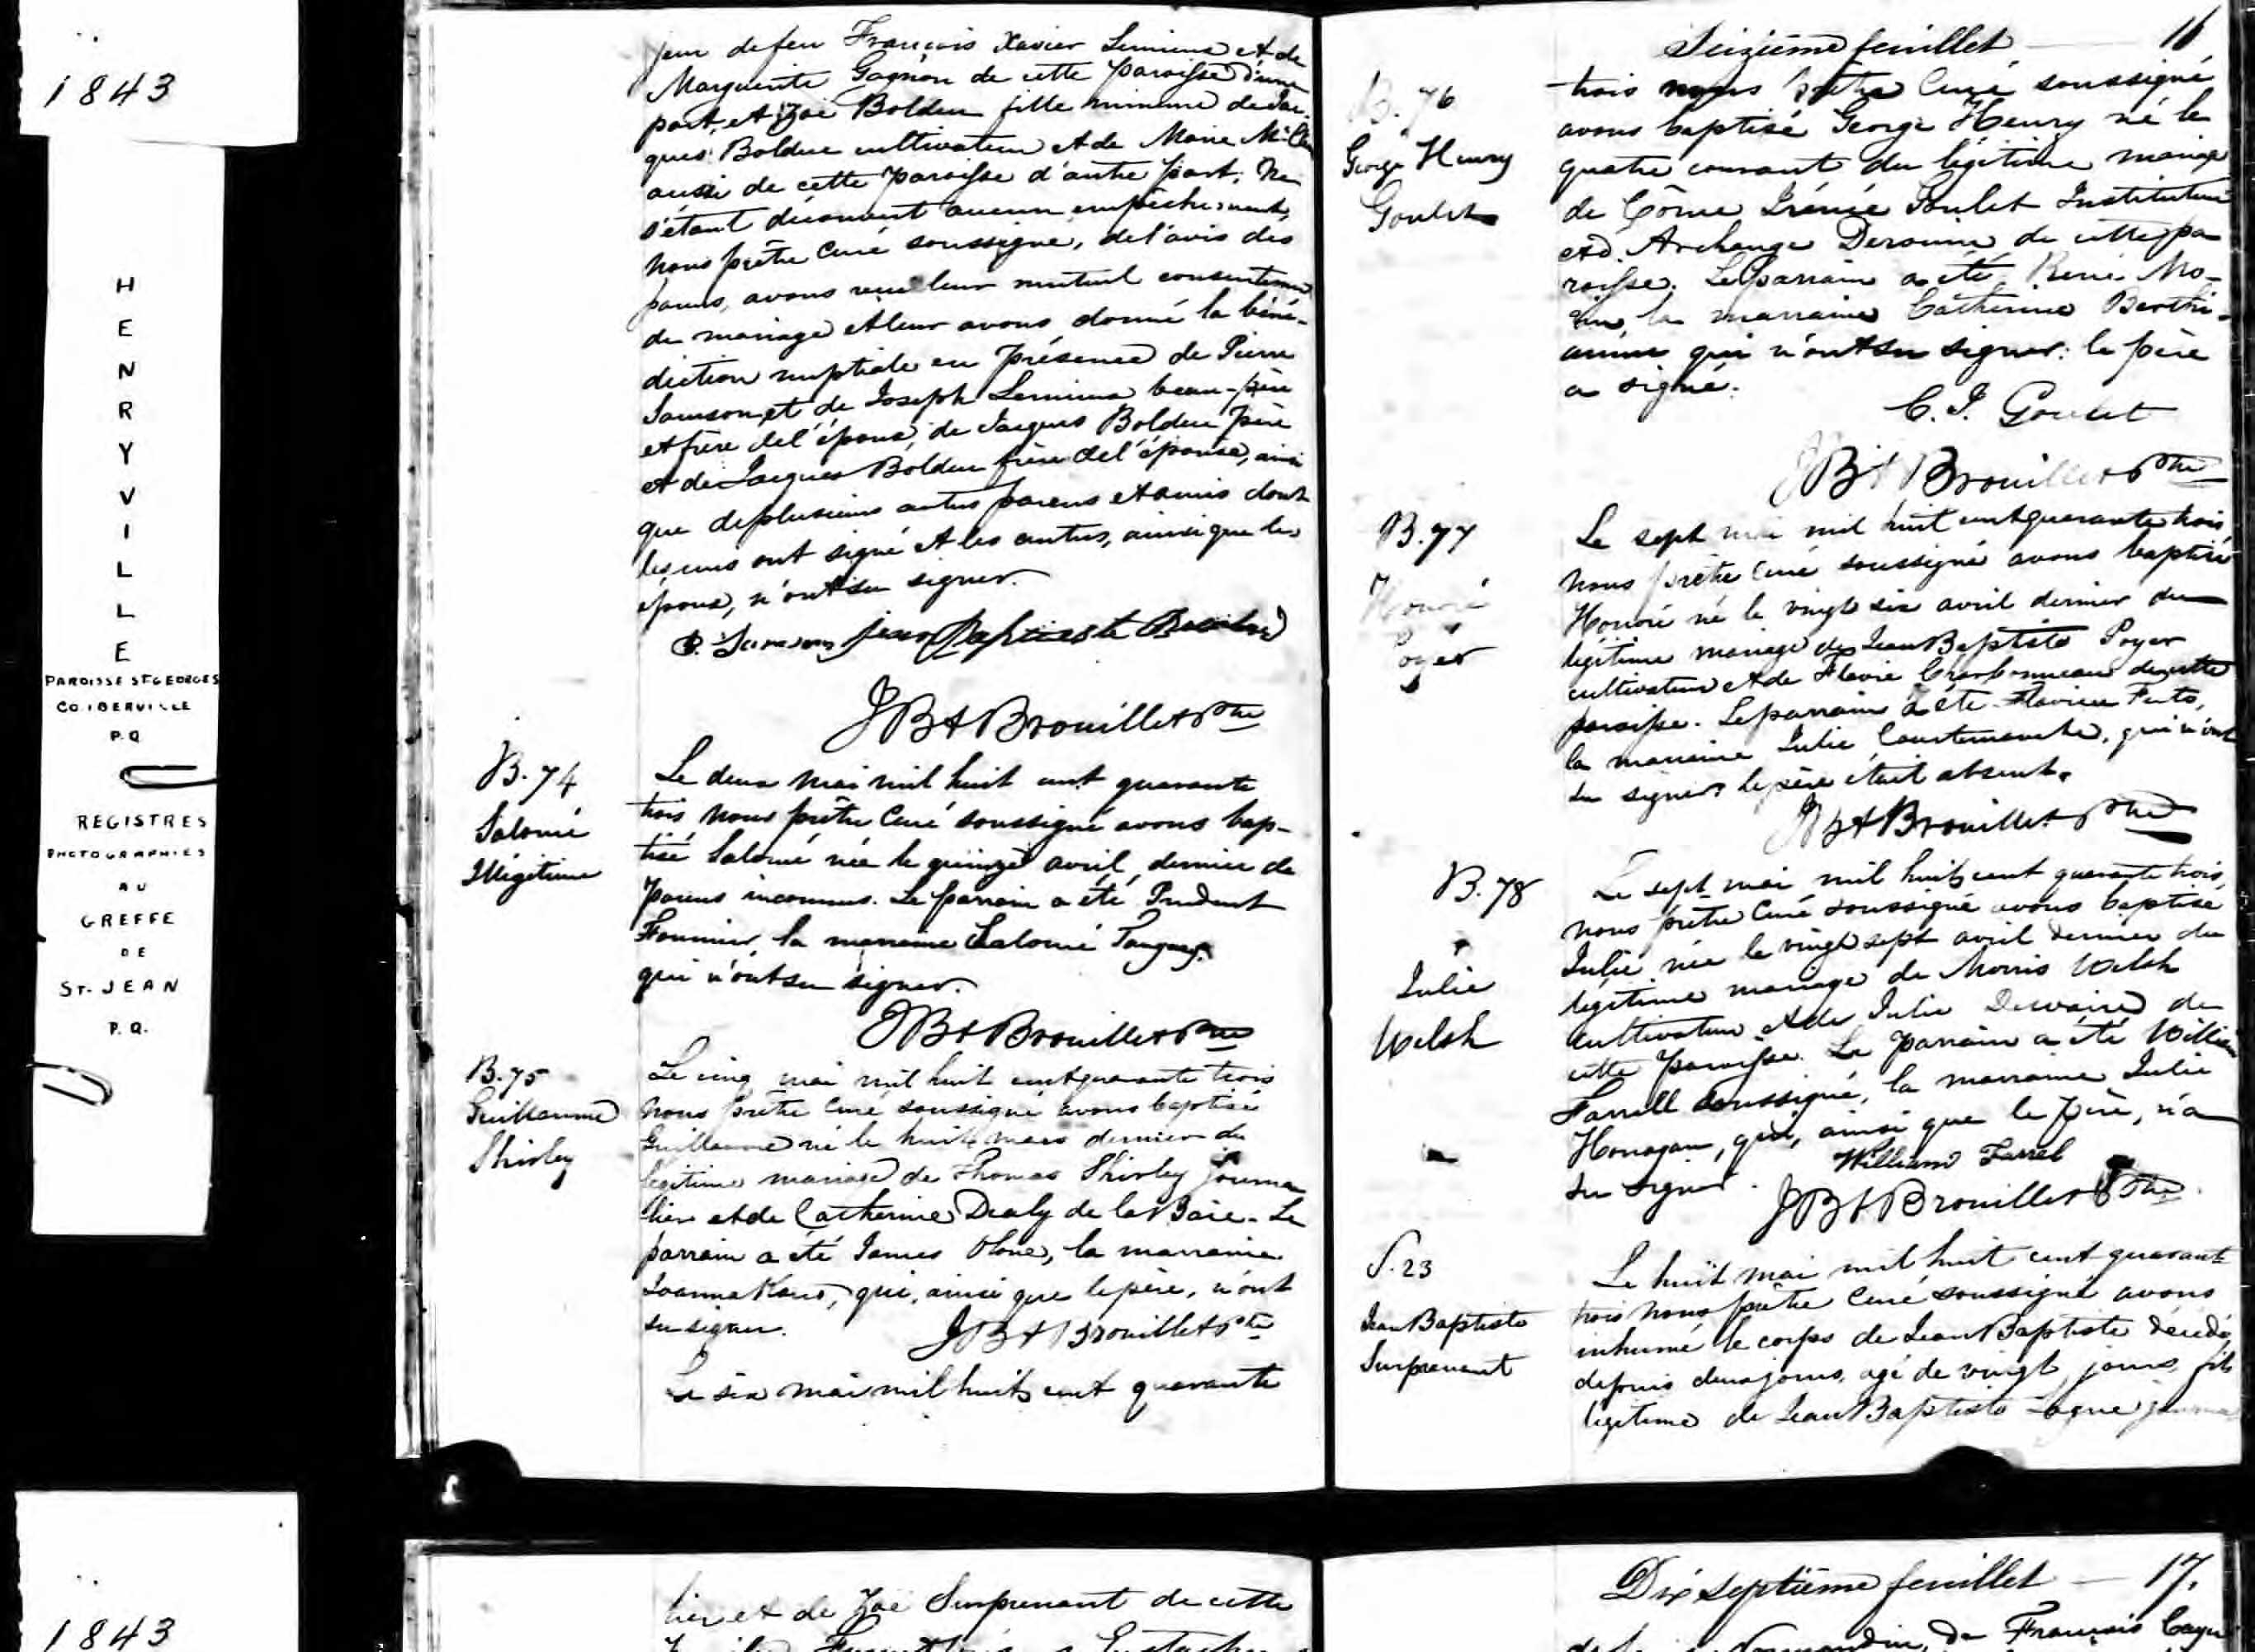 1843
HENRYVILLE
PAROISSE ST GEORGES
CO. IBERVILLE
P.Q
REGISTRES
PHOTOGRAPHIES
AU
GREFFE
DE
ST. JEAN
P.Q.
jeur de feu François Xavier Lemieux et de
Marguerite Gagnon de cette paroisse d'une
part, et Zoé Bolduc fille mineure de Jac-
ques Bolduc cultivateur et de Marie
aussi de cette paroisse d'autre part. Ne
s'étant découvert aucun empêchement,
nous prêtre Curé soussigné, de l'avis des
parens, avons reçu leur mutuel consentement
de mariage et leur avons donné la béné-
diction nuptiale en présence de Pierre
Samson et de Joseph Lemieux beau-père
et frère de l'époux, de Jacques Bolduc père
et de Jacques Bolduc frère de l'épouse, ainsi
que de plusieurs autres parens et amis dont
les uns ont signé et les autres, ainsi que les
époux, n'ont su signer.
P. Samson Jean Baptiste
JBt Brouillet Ptre
B. 74
Salomé
Illégitime
Le deux mai mil huit cent quarante
trois nous prêtre Curé soussigné avons bap-
tisé Salomé née le quinze avril dernier de
parens inconnus. Le parrain a été Prudent
Fournier, la marraine Salomé Tanguay
qui n'ont su signer.
JBt Brouillet Ptre
B. 75
Guillaume
Shirley
Le cinq mai mil huit cent quarante trois
nous prêtre Curé soussigné avons baptisé
Guillaume né le huit mars dernier du
légitime mariage de Thomas Shirley journa
lier et de Catherine Dealy de la Baie. Le
parrain a été James, la marraine
Joanna, qui, ainsi que le père, n'ont
su signer.
JBt Brouillet Ptre
Le six mai mil huit cent quarante
Seizième feuillet — 16
B. 76
George Henry
Goulet
trois nous prêtre Curé soussigné
avons baptisé George Henry né le
quatre courant du légitime mariage
de Côme Irénée Goulet Instituteur
et d'Archange Derouin de cette pa
roisse. Le parrain a été René Mo-
rin, la marraine Catherine Berthi-
aume qui n'ont su signer: le père
a signé.
C. I. Goulet
JBt Brouillet Ptre
B. 77
Honoré
Poyer
Le sept mai mil huit cent quarante trois
nous prêtre Curé soussigné avons baptisé
Honoré né le vingt six avril dernier du
légitime mariage de Jean Baptiste Poyer
cultivateur et de Flavie Charbonneau de cette
paroisse. Le parrain a été Flavien,
la marraine Julie Courtemanche, qui n'ont
su signer: le père était absent.
JBt Brouillet Ptre
B. 78
Julie
Welsh
Le sept mai mil huit cent quarante trois,
nous prêtre Curé soussigné avons baptisé
Julie, née le vingt sept avril dernier du
légitime mariage de Morris Welsh
cultivateur et de Julie de
cette paroisse. Le parrain a été William
Farrell soussigné, la marraine Julie
Honagan, qui, ainsi que le père, n'a
su signer.
William Farrel
JBt Brouillet Ptre
S. 23
Jean Baptiste
Surprenant
Le huit mai mil huit cent quarante
trois nous prêtre Curé soussigné avons
inhumé le corps de Jean Baptiste décédé
depuis deux jours, agé de vingt jours, fils
légitime de Jean Baptiste journa
1843
lier et de Zoé Surprenant de cette
Dix septième feuillet — 17.
de François